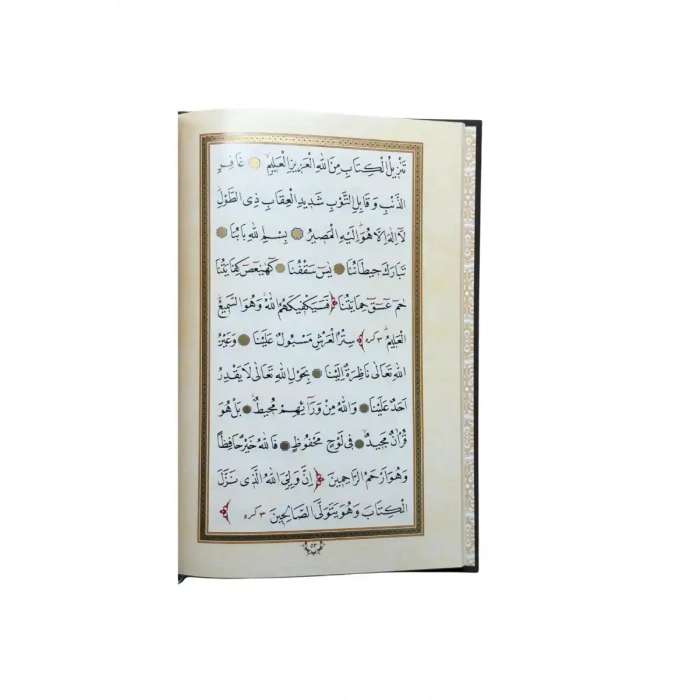 تَنْزِيلُ الْكِتَابِ مِنَ اللهِ الْعَزِيزِ الْعَلِيمِ ۞ غَافِرِ
الذَّنْبِ وَقَابِلِ التَّوْبِ شَدِيدِ الْعِقَابِ ذِى الطَّوْلِ
لَا اِلٰهَ اِلَّا هُوَ اِلَيْهِ الْمَصِيرُ ۞ بِسْمِ اللهِ بَابُنَا ۞
تَبَارَكَ حِيطَانُنَا ۞ يٰسٓ سَقْفُنَا ۞ كٓهٰيٰعٓصٓ كِفَايَتُنَا
حٰمٓ عٓسٓقٓ حِمَايَتُنَا فَسَيَكْفِيكَهُمُ اللهُ وَهُوَ السَّمِيعُ
الْعَلِيمُ ٣ كره سِتْرُ الْعَرْشِ مَسْبُولٌ عَلَيْنَا ۞ وَعَيْنُ
اللهِ تَعَالٰى نَاظِرَةٌ اِلَيْنَا ۞ بِحَوْلِ اللهِ تَعَالٰى لَا يَقْدِرُ
اَحَدٌ عَلَيْنَا ۞ وَاللهُ مِنْ وَرَآئِهِمْ مُحِيطٌ ۞ بَلْ هُوَ
قُرْاٰنٌ مَجِيدٌ ۞ فِى لَوْحٍ مَحْفُوظٍ ۞ فَاللهُ خَيْرٌ حَافِظًا
وَهُوَ اَرْحَمُ الرَّاحِمِينَ اِنَّ وَلِيِّىَ اللهُ الَّذِى نَزَّلَ
الْكِتَابَ وَهُوَ يَتَوَلَّى الصَّالِحِينَ ٣ كره
٥٣